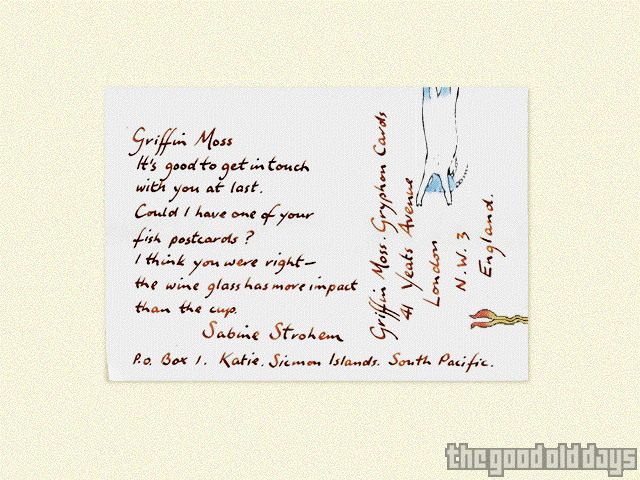 Griffin Moss
It's good to get in touch
with you at last.
Could I have one of your
fish postcards?
I think you were right—
the wine glass has more impact
than the cup.
Sabine Strohem
P.O. Box 1. Katie. Sicmon Islands. South Pacific.
Griffin Moss. Gryphon Cards
41 Yeats Avenue
London
N.W. 3
England.
the good old days